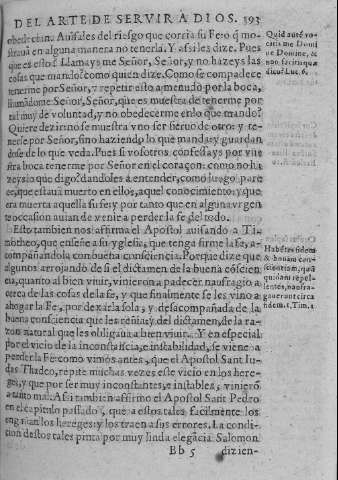 DEL ARTE DE SERVIR A DIOS. 393
obedecian. Auisales del riesgo que corria su Fe, pero q mo-
strauā en alguna manera no tenerla. Y assi les dize. Pues
que es esto? Llamays me Señor, Señor, y no hazeys las
cosas que mando? como quien dize. Como se compadece
tenerme por Señor, y repetir esto a menudo por la boca,
llamādome Señor, Señor, que es muestra de tenerme por
tal muy de voluntad, y no obedecerme en lo que mando?
Quiere dezir: no se muestra vno ser sieruo de otro: y te-
nerle por Señor, sino haziendo lo que manda: y guardan
dose de lo que veda. Pues si vosotros confessays por vue
stra boca tenerme por Señor en el coraçon: como no ha
zeys lo que digo? dandoles a entender, como luego pare
ce, que estaua muerto en ellos, aquel conocimiento: y que
era muerta aquella su fe y por tanto que en alguna vrgen
te occasion auian de venir a perder la fe del todo.
Esto tambien nos affirma el Apostol auisando a Ti-
motheo, que enseñe a su yglesia, que tenga firme la fe, a-
compañandola con buena consciencia. Porque dize que
algunos arrojando de si el dictamen de la buena cōscien
cia, quanto al bien viuir, vinieron a padecer naufragio a
cerca de las cosas de la fe, y que finalmente se les vino a
ahogar la Fe, por dexarla sola, y desacompañada de la
buena consciencia que les reñia: y del dictamen, de la ra-
zon natural que les obligaua a bien viuir. Y en especial
por el vicio de la inconstācia, e instabilidad, se viene a
perder la Fe: como vimos antes, que el Apostol Sant Iu-
das Thadeo, repite muchas vezes este vicio en los here-
ges, y que por ser muy inconstantes, e instables, vinierō
a tanto mal. Assi tambien affirmo el Apostol Sant Pedro
en el capitulo passado, que a estos tales facilmente los
engañan los hereges: y los traen a sus errores. La condi-
cion destos tales pinta por muy linda elegācia. Salomon
Bb 5 dizien-
Quid autē vo-
catis me Domi
ne Domine, &
non facitis quæ
dico? Luc. 6.
Habēs fidem
& bonam con-
scientiam, quā
quidam repel-
lentes, naufra-
gauerunt circa
fidem. 1. Tim. 1